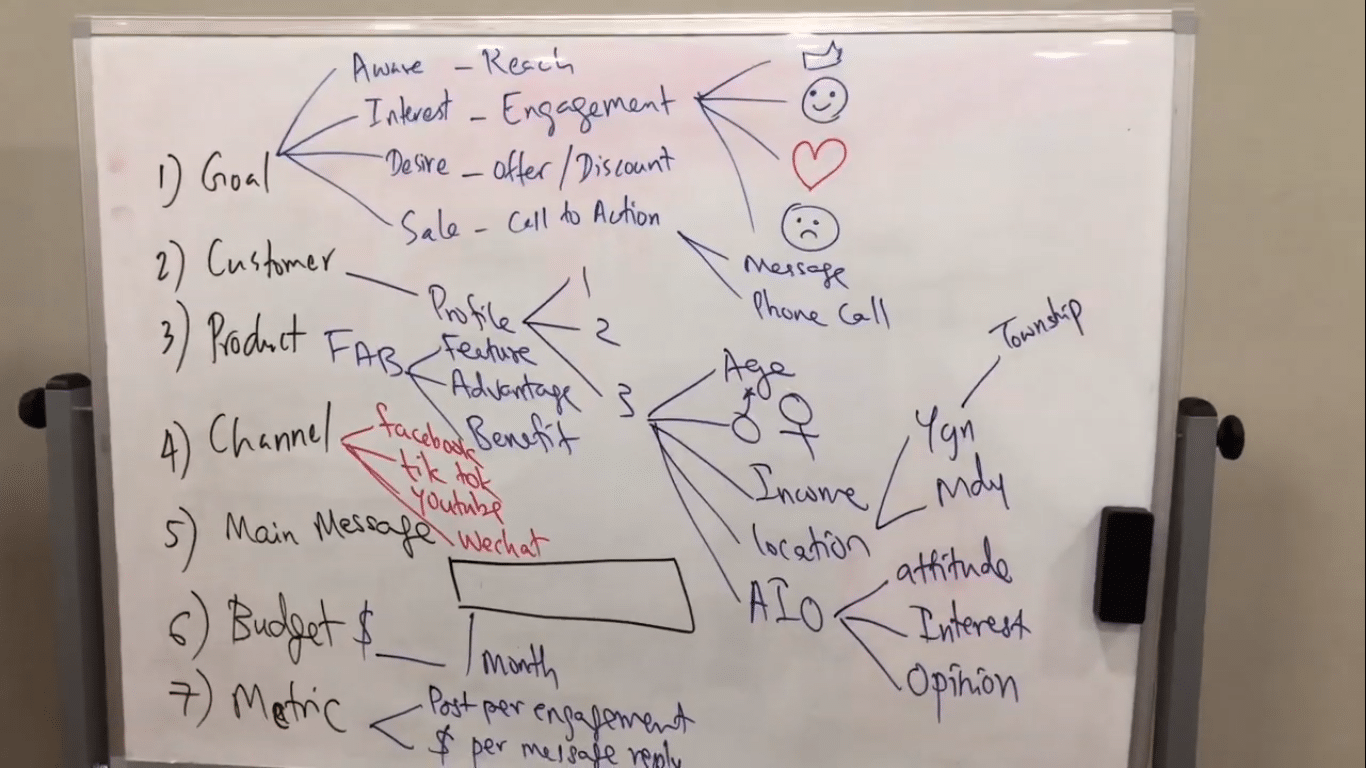 Aware - Reach
Interest - Engagement
Desire - offer / Discount
1) Goal
Sale - Call to Action
2) Customer
Message
Phone Call
Profile
1
2
3
3) Product
FAB
Feature
Advantage
Benefit
Age
Income
location
Ygn
Township
Mdy
AIO
attitude
Interest
Opinion
4) Channel
facebook
tik tok
youtube
wechat
5) Main Message
6) Budget $ __ / Month
7) Metric
Post per engagement
$ per message reply